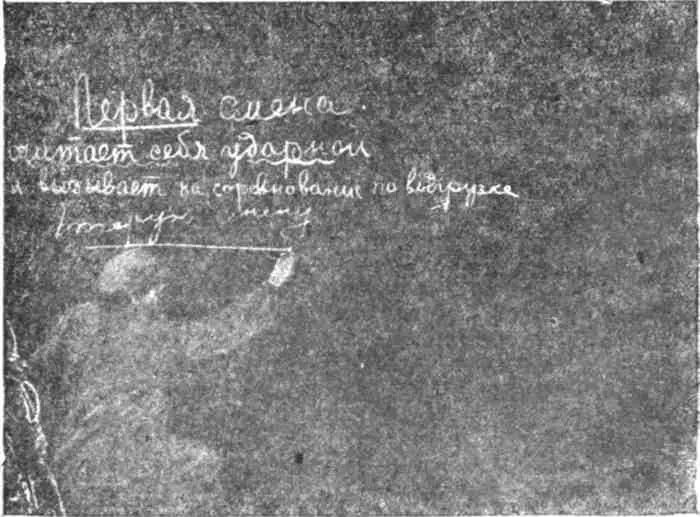 Первая смена
считает себя ударной
и вызывает на соревнование по відгрузке
вторую смену